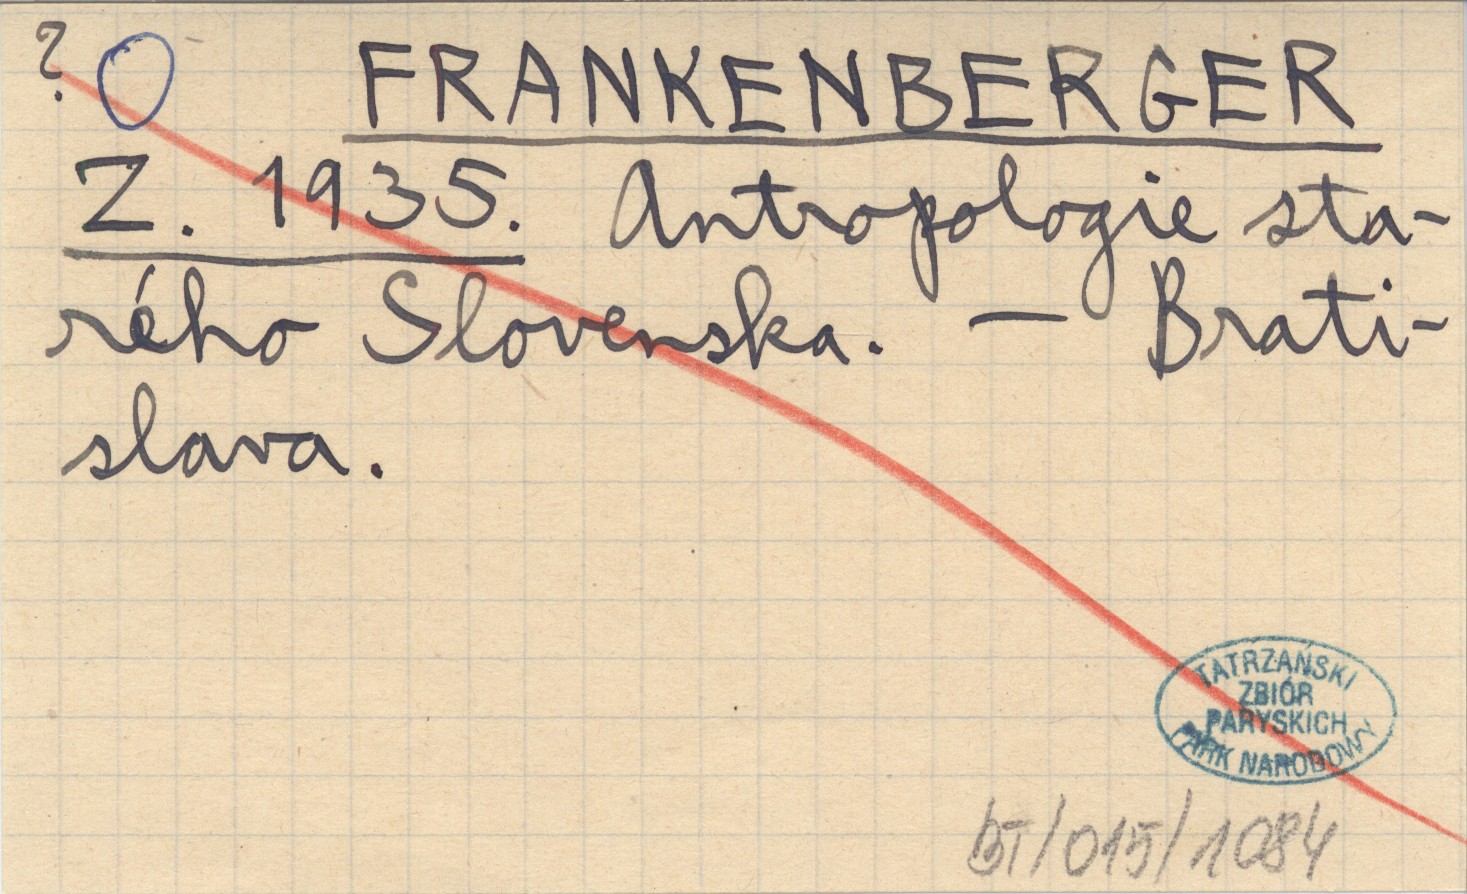 ? FRANKENBERGER
Z. 1935. Antropologie sta-
rého Slovenska. — Brati-
slava.
TATRZAŃSKI
ZBIÓR
PARYSKICH
PARK NARODOWY
BT/015/1084